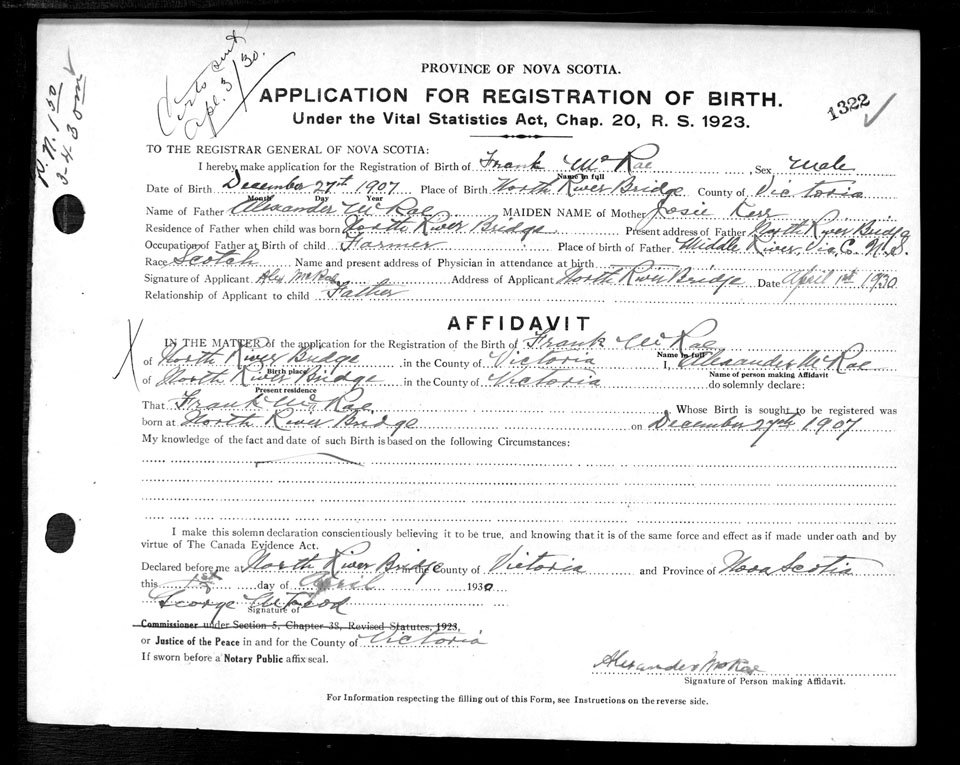 Apl. 3/30.
3-4-30
PROVINCE OF NOVA SCOTIA.
APPLICATION FOR REGISTRATION OF BIRTH.
1322
Under the Vital Statistics Act, Chap. 20, R. S. 1923.
TO THE REGISTRAR GENERAL OF NOVA SCOTIA:
I hereby make application for the Registration of Birth of Frank McRae Sex Male
Name in full
Date of Birth December 27th 1907 Place of Birth North River Bridge County of Victoria
Month Day Year
Name of Father Alexander McRae MAIDEN NAME of Mother Josie Kerr
Residence of Father when child was born North River Bridge Present address of Father North River Bridge
Occupation of Father at Birth of child Farmer Place of birth of Father Middle River, Vic. Co. N.S.
Race Scotch Name and present address of Physician in attendance at birth
Signature of Applicant Alex McRae Address of Applicant North River Bridge Date April 1st 1930
Relationship of Applicant to child Father
AFFIDAVIT
IN THE MATTER of the application for the Registration of the Birth of Frank McRae
Name in full
of North River Bridge in the County of Victoria I, Alexander McRae
Birth place Name of person making Affidavit
of North River Bridge in the County of Victoria do solemnly declare:
Present residence
That Frank McRae, Whose Birth is sought to be registered was
born at North River Bridge on December 27th 1907
My knowledge of the fact and date of such Birth is based on the following Circumstances:
I make this solemn declaration conscientiously believing it to be true, and knowing that it is of the same force and effect as if made under oath and by
virtue of The Canada Evidence Act.
Declared before me at North River Bridge in the County of Victoria and Province of Nova Scotia
this 1st day of April 1930
George McLeod
Signature of
Commissioner under Section 5, Chapter 38, Revised Statutes, 1923,
or Justice of the Peace in and for the County of Victoria
If sworn before a Notary Public affix seal.
Alexander McRae
Signature of Person making Affidavit.
For Information respecting the filling out of this Form, see Instructions on the reverse side.